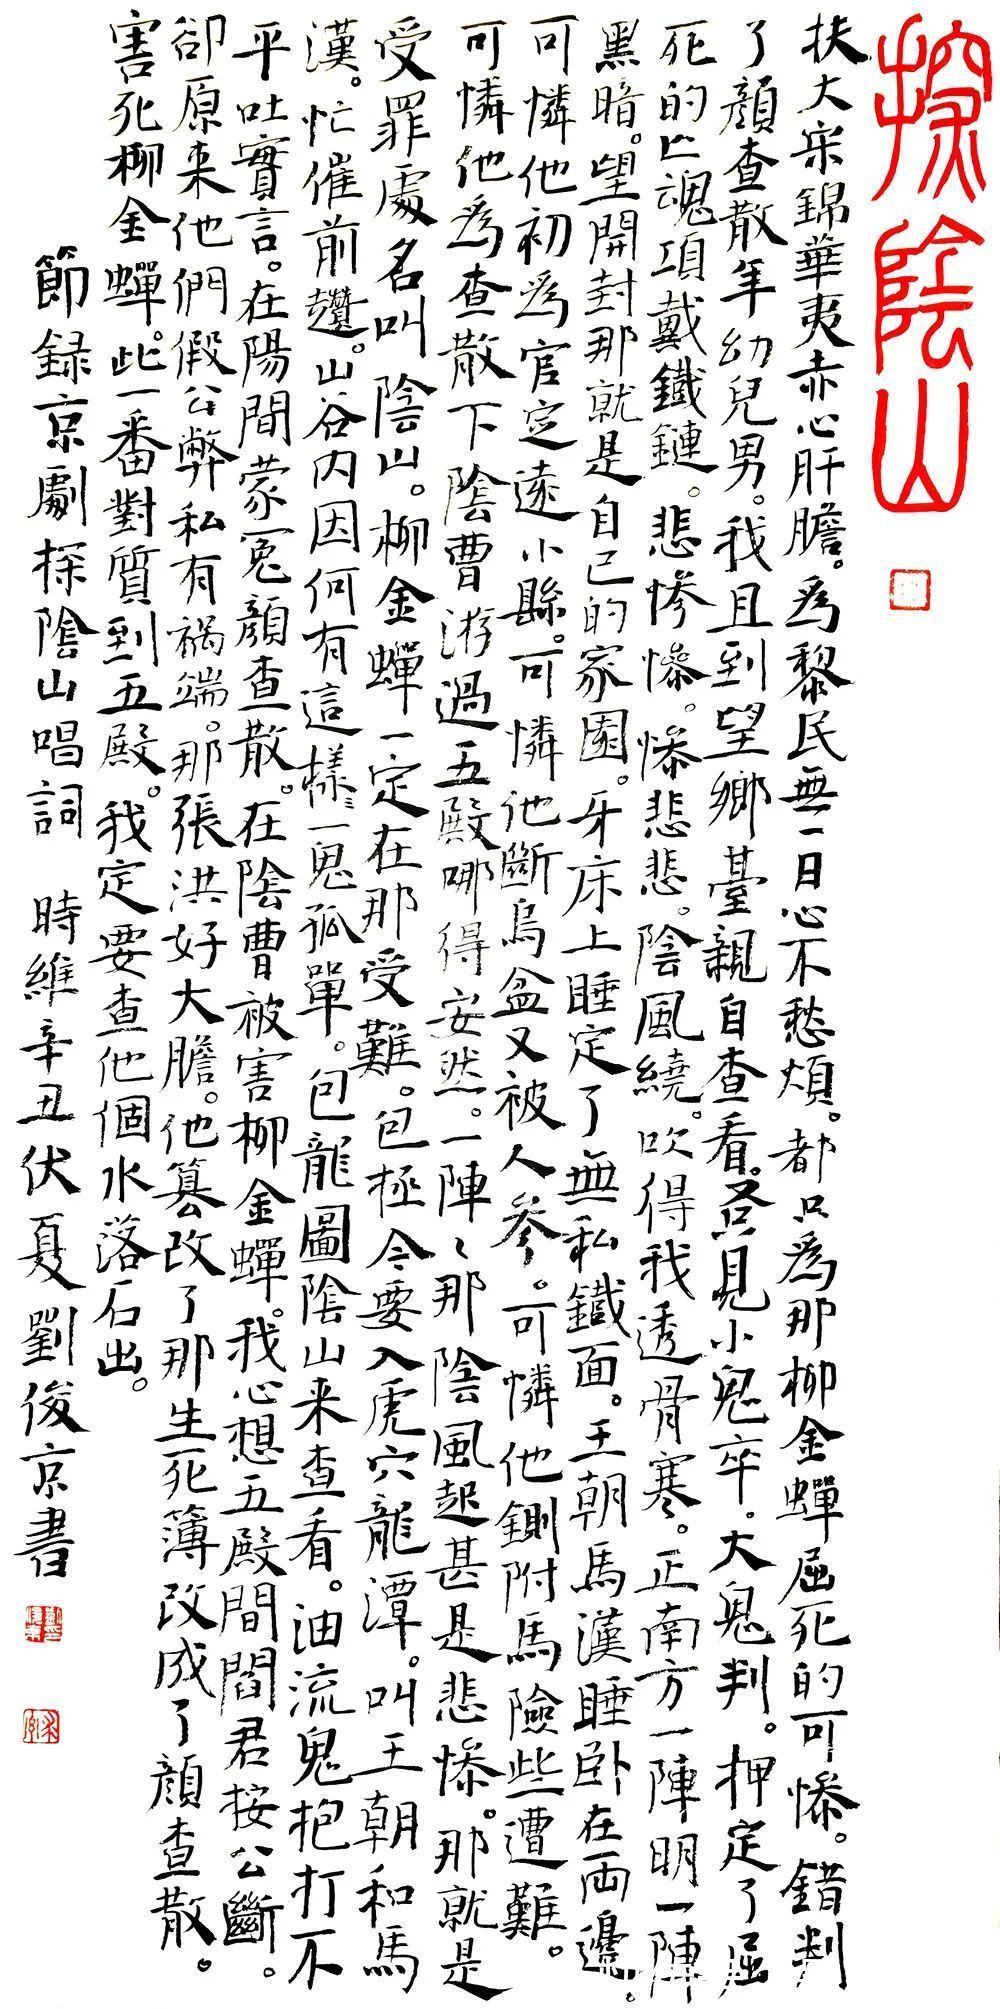 探陰山
扶大宋錦華夷赤心肝膽。為黎民無一日心不愁煩。都只為那柳金蟬屈死的可慘。錯判
了顏查散年幼兒男。我且到望鄉臺親自查看。又只見小鬼卒。大鬼判。押定了屈
死的亡魂項戴鐵鏈。悲慘慘。慘悲悲。陰風繞。吹得我透骨寒。正南方一陣明一陣
黑暗。望開封那就是自己的家園。牙床上睡定了無私鐵面。王朝馬漢睡卧在両邊。
可憐他初為官定遠小縣。可憐他斷烏盆又被人參。可憐他鍘附馬險些遭難。
可憐他為查散下陰曹游過五殿哪得安然。一陣〻那陰風起甚是悲慘。那就是
受罪處名叫陰山。柳金蟬一定在那受難。包極今要入虎穴龍潭。叫王朝和馬
漢。忙催前趲。山谷内因何有這樣〻一鬼孤單。包龍圖陰山来查看。油流鬼抱打不
平吐實言。在陽間蒙冤顏查散。在陰曹被害柳金蟬。我心想五殿間閻君按公斷。
卻原来他們假公弊私有禍端。那張洪好大膽。他篡改了那生死簿改成了顏查散。
害死柳金蟬。此一番對質到五殿。我定要查他個水落石出。
節録京劇探陰山唱詞 時維辛丑伏夏劉俊京書